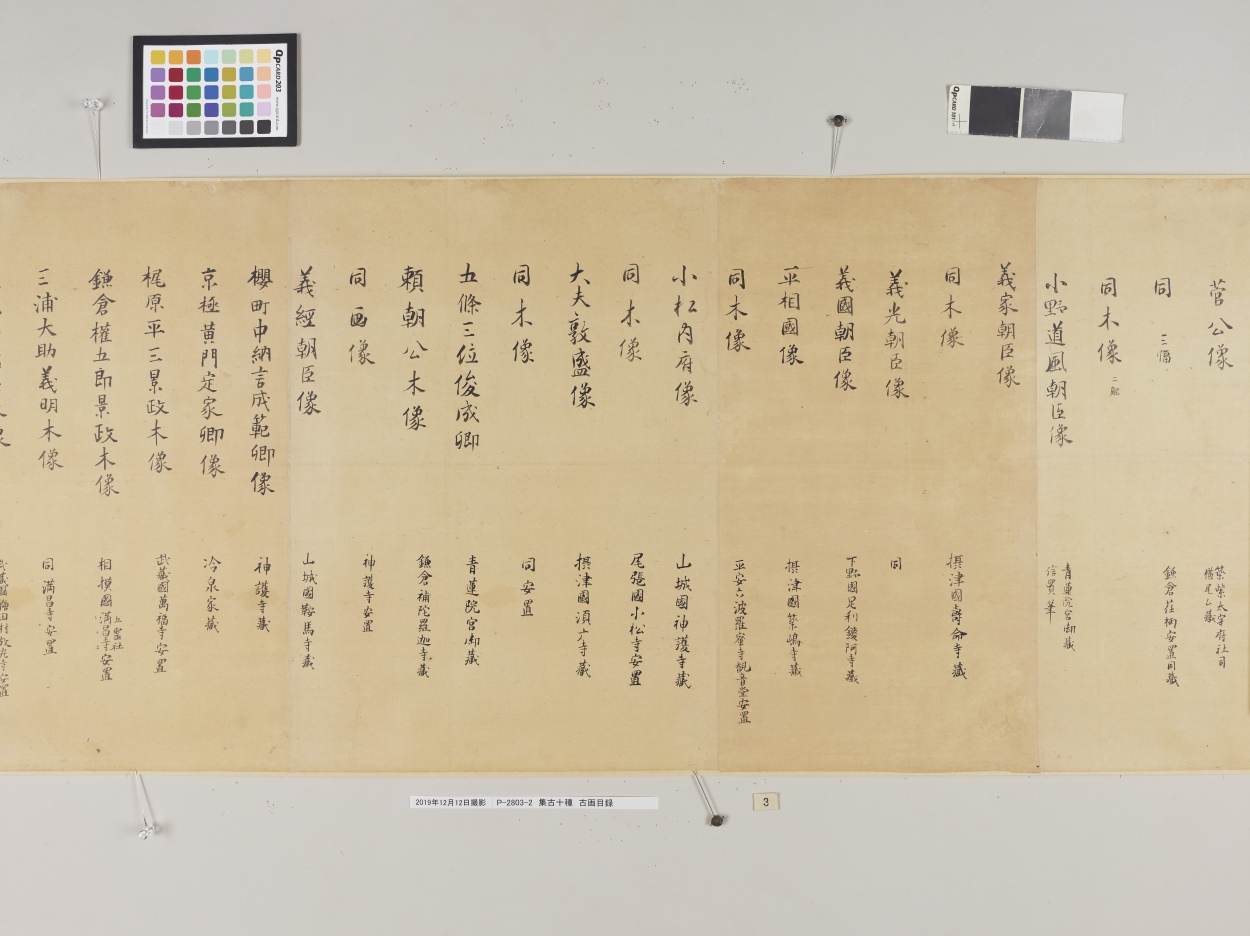 菅公像
筑紫太宰府社司
同 三幅
鎌倉荏柄安置同蔵
同木像 二躯
小野道風朝臣像
青蓮院宮御蔵
信實筆
義家朝臣像
同木像
摂津國壽命寺蔵
義光朝臣像
同
義國朝臣像
下野國足利鑁阿寺蔵
平相國像
摂津國築嶋寺蔵
同木像
平安六波羅蜜寺観音堂安置
小松内府像
山城國神護寺蔵
同木像
尾張國小松寺安置
大夫敦盛像
摂津國須广寺蔵
同木像
同安置
五條三位俊成卿
青蓮院宮御蔵
頼朝公木像
鎌倉補陀羅迦寺蔵
同画像
神護寺安置
義經朝臣像
山城國鞍馬寺蔵
櫻町中納言成範卿像
神護寺蔵
京極黄門定家卿像
冷泉家蔵
梶原平三景政木像
武蔵國萬福寺安置
鎌倉權五郎景政木像
相摸國
五霊社
満昌寺安置
三浦大助義明木像
同満昌寺安置
QPCARD 203
QPCARD 101
2019年12月12日撮影 P-2803-2 集古十種 古画目録
3